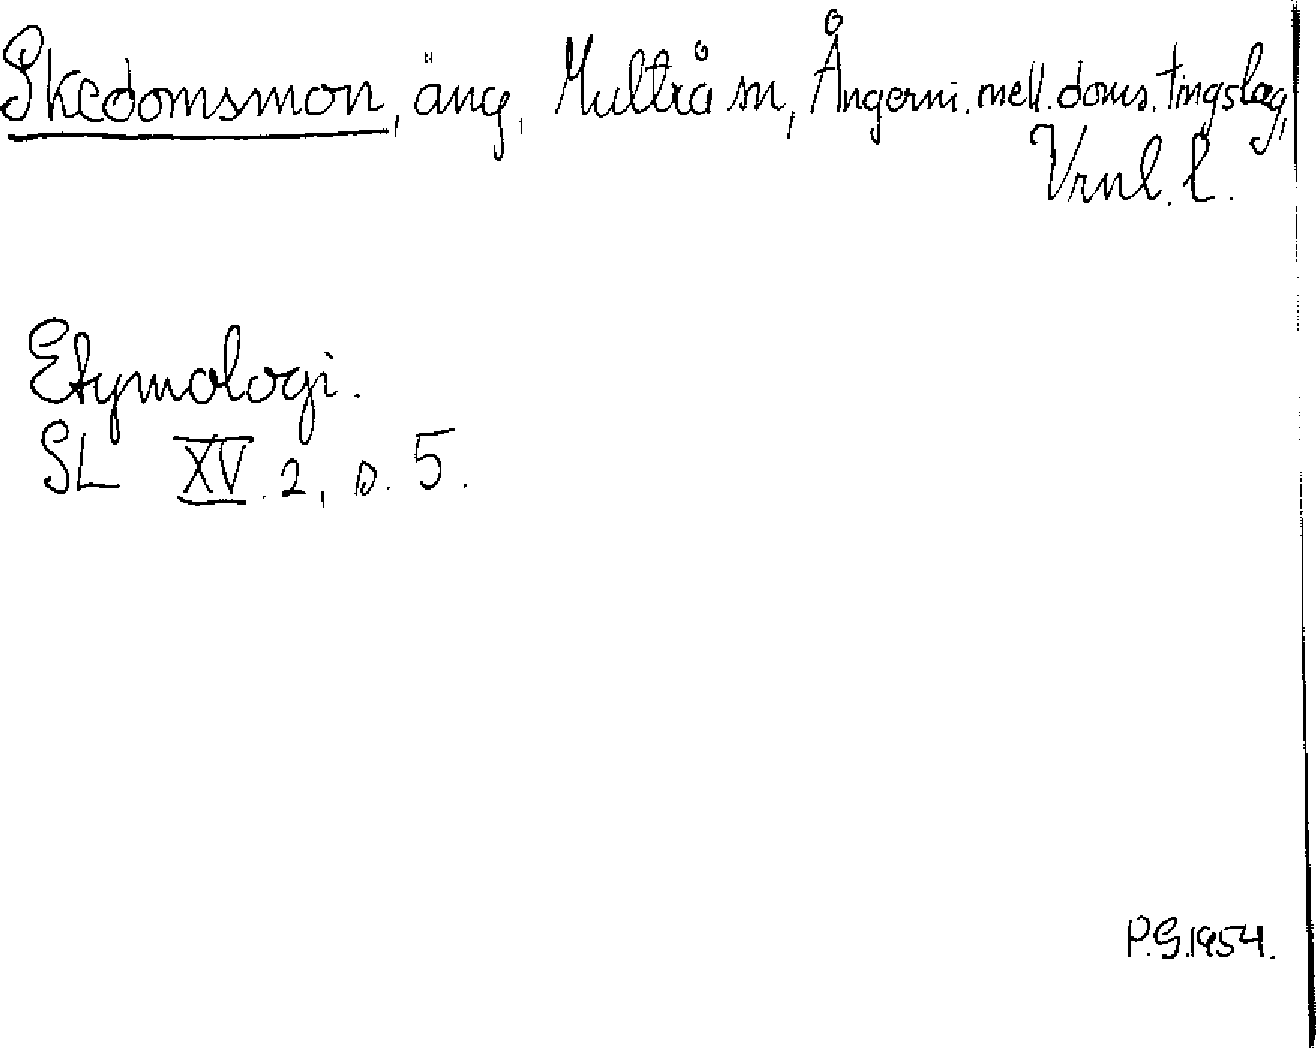 Skedomsmon, äng, Multrå sn, Ångerm. mell. doms. tingslag,
Vrnl. l.
Etymologi.
SL XV. 2, s. 5.
P.G. 1954.